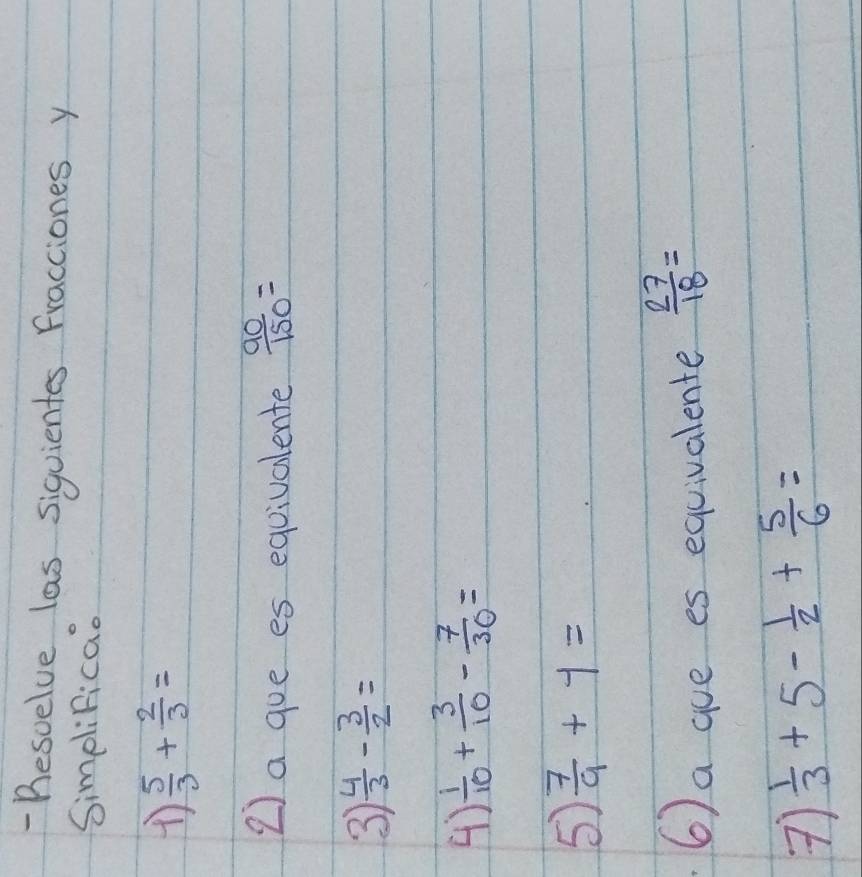 - Resuelve las siguientes Fracciones y
Simplifica:
1) 5/3 + 2/3 =
2) a que es equivalente 90/150 =
3) 4/3 - 3/2 =
4) 1/10 + 3/10 - 7/30 =
5) 7/9 + 1 =
6) a que es equivalente 27/18 =
7) 1/3 + 5 - 1/2 + 5/6 =